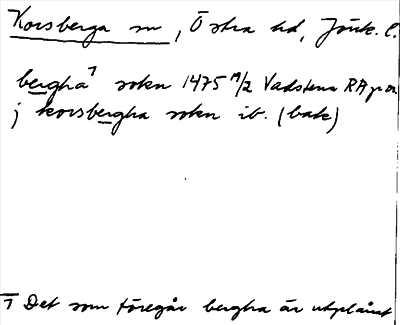 Korsberga sn, Östra hd, Jönk. l.
bergha⁷ sokn 1475 19/2 Vadstena RA pon
j korsbergha sokn ib. (bak)
⁷ Det som föregår bergha är utplånat